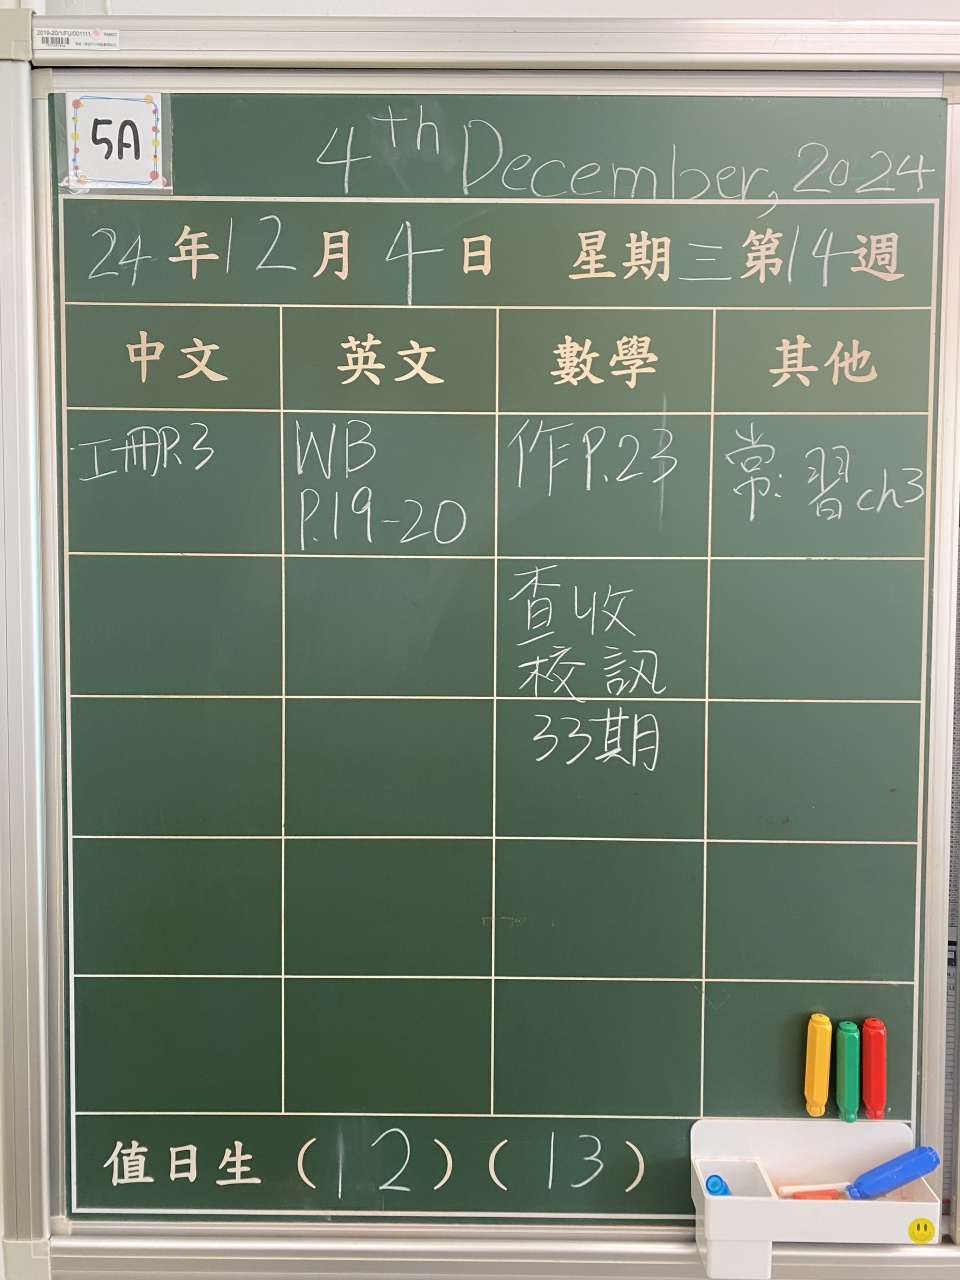 2019-20/1/FU/001111
5A
4th December, 2024
24年12月4日 星期三第14週
中文 英文 數學 其他
工冊P.3
WB
P.19-20
作P.23
常:習ch3
查收
校訊
33期
值日生(12)(13)